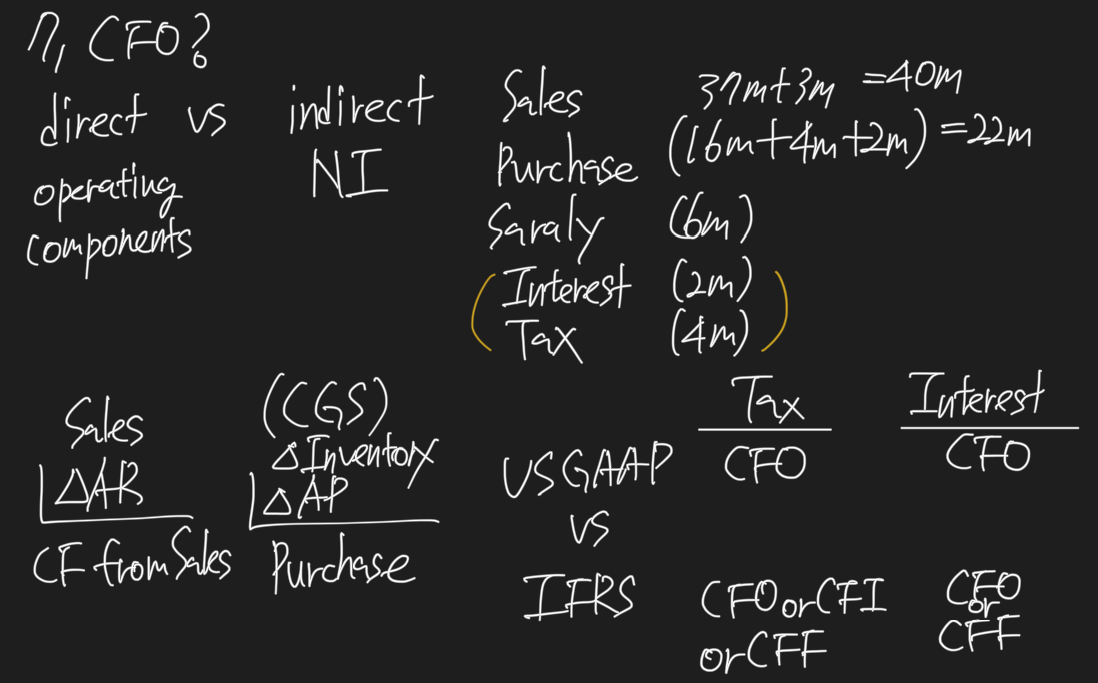 7, CFO?
direct vs indirect
operating components
NI
Sales 37m+3m =40m
Purchase (16m+4m+2m) =22m
Saraly (6m)
Interest (2m)
Tax (4m)
Sales
ΔAR
CF from Sales
(CGS)
ΔInventory
ΔAP
Purchase
Tax Interest
US GAAP CFO CFO
vs
IFRS CFO or CFI or CFF CFO or CFF